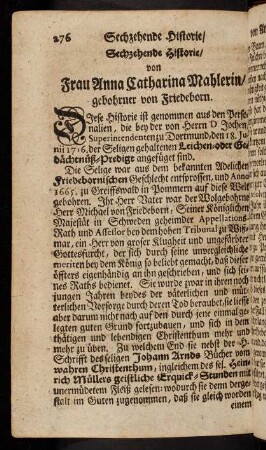 276 Sechzehende Historie/
Sechzehende Historie/
von
Frau Anna Catharina Mahlerin/
gebohrner von Friedeborn.
Diese Historie ist genommen aus den Perso-
nalien, die bey der von Herrn D. Jochen,
Superintendenten zu Dortmund/den 18. Ju-
nii 1716. der Seligen gehaltenen Leichen-oder Ge-
dächtnüß/Predigt angefügt sind.
Die Selige war aus dem bekannten Adelichen
Friedebornischen Geschlecht entsprossen, und Anno
1665. zu Greiffswald in Pommern auf diese Welt
gebohren. Ihr Herr Vater war der Wolgebohrne
Herr Michael von Friedeborn, Seiner Königlichen
Majestät in Schweden geheimder Appellations-
Rath und Assessor bey dem hohen Tribunal zu Wiß-
mar, ein Herr von grosser Klugheit und ungefärbter
Gottesfurcht, der sich durch seine unvergleichliche
meriten bey dem König so beliebt gemacht, daß dieser
öffters eigenhändig an ihn geschrieben, und sich sei-
nes Raths bedienet. Sie wurde zwar in ihren noch
jungen Jahren beydes der väterlichen und müt-
terlichen Vorsorge durch deren Tod beraubet, sie liesse
aber darum nicht nach auf den durch jene einmal ge-
legten guten Grund fortzubauen, und sich in dem
thätigen und lebendigen Christenthum mehr und
mehr zu üben. Zu welchem End sie nebst der H.
Schrifft des seligen Johann Arnds Bücher vom
wahren Christenthum, ingleichem des sel. Hein-
rich Müllers geistliche Erquick-Stunden mit
unermüdetem Fleiß gelesen: wodurch sie denn derge-
stalt im Guten zugenommen, daß sie gleich worden
einem